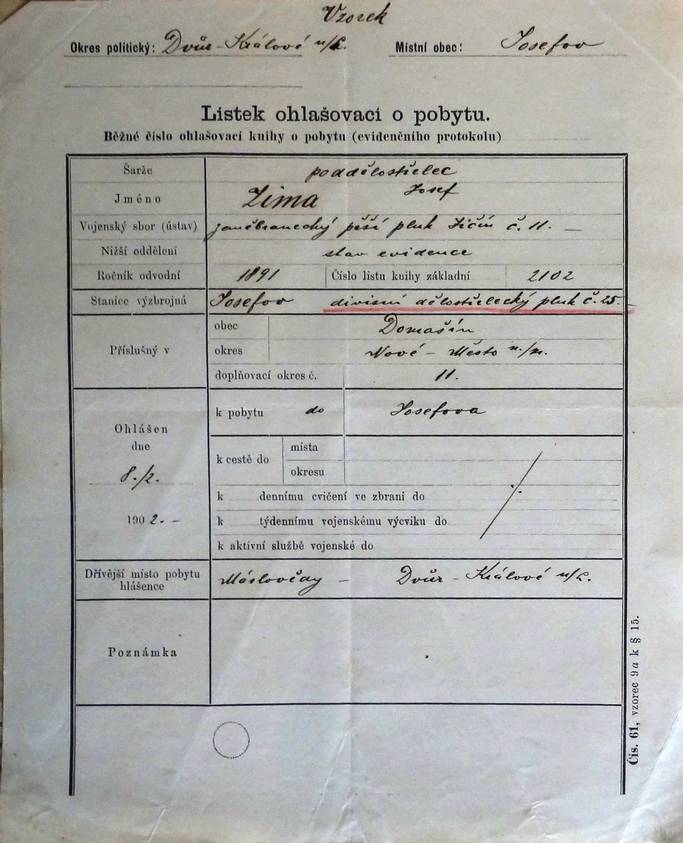 Vzorek
Okres politický: Dvůr-Králové n/L. Místní obec: Josefov
Lístek ohlašovací o pobytu.
Běžné číslo ohlašovací knihy o pobytu (evidenčního protokolu)
Šarže poddělostřelec
Jméno Zima Josef
Vojenský sbor (ústav) zeměbranecký pěší pluk Jičín č. 11. —
Nižší oddělení stav evidence
Ročník odvodní 1891 Číslo listu knihy základní 2102
Stanice výzbrojná Josefov divisní dělostřelecký pluk č. 25. —
Příslušný v
obec Domašín
okres Nové-Město n/M.
doplňovací okres č. 11.
Ohlášen
dne
8./2.
1902.—
k pobytu do Josefova
k cestě do
místa
okresu
k dennímu cvičení ve zbrani do
k týdennímu vojenskému výcviku do
k aktivní službě vojenské do
Dřívější místo pobytu
hlášence
— Dvůr-Králové n/L.
Poznámka
Čís. 61, vzorec 9 a k § 15.